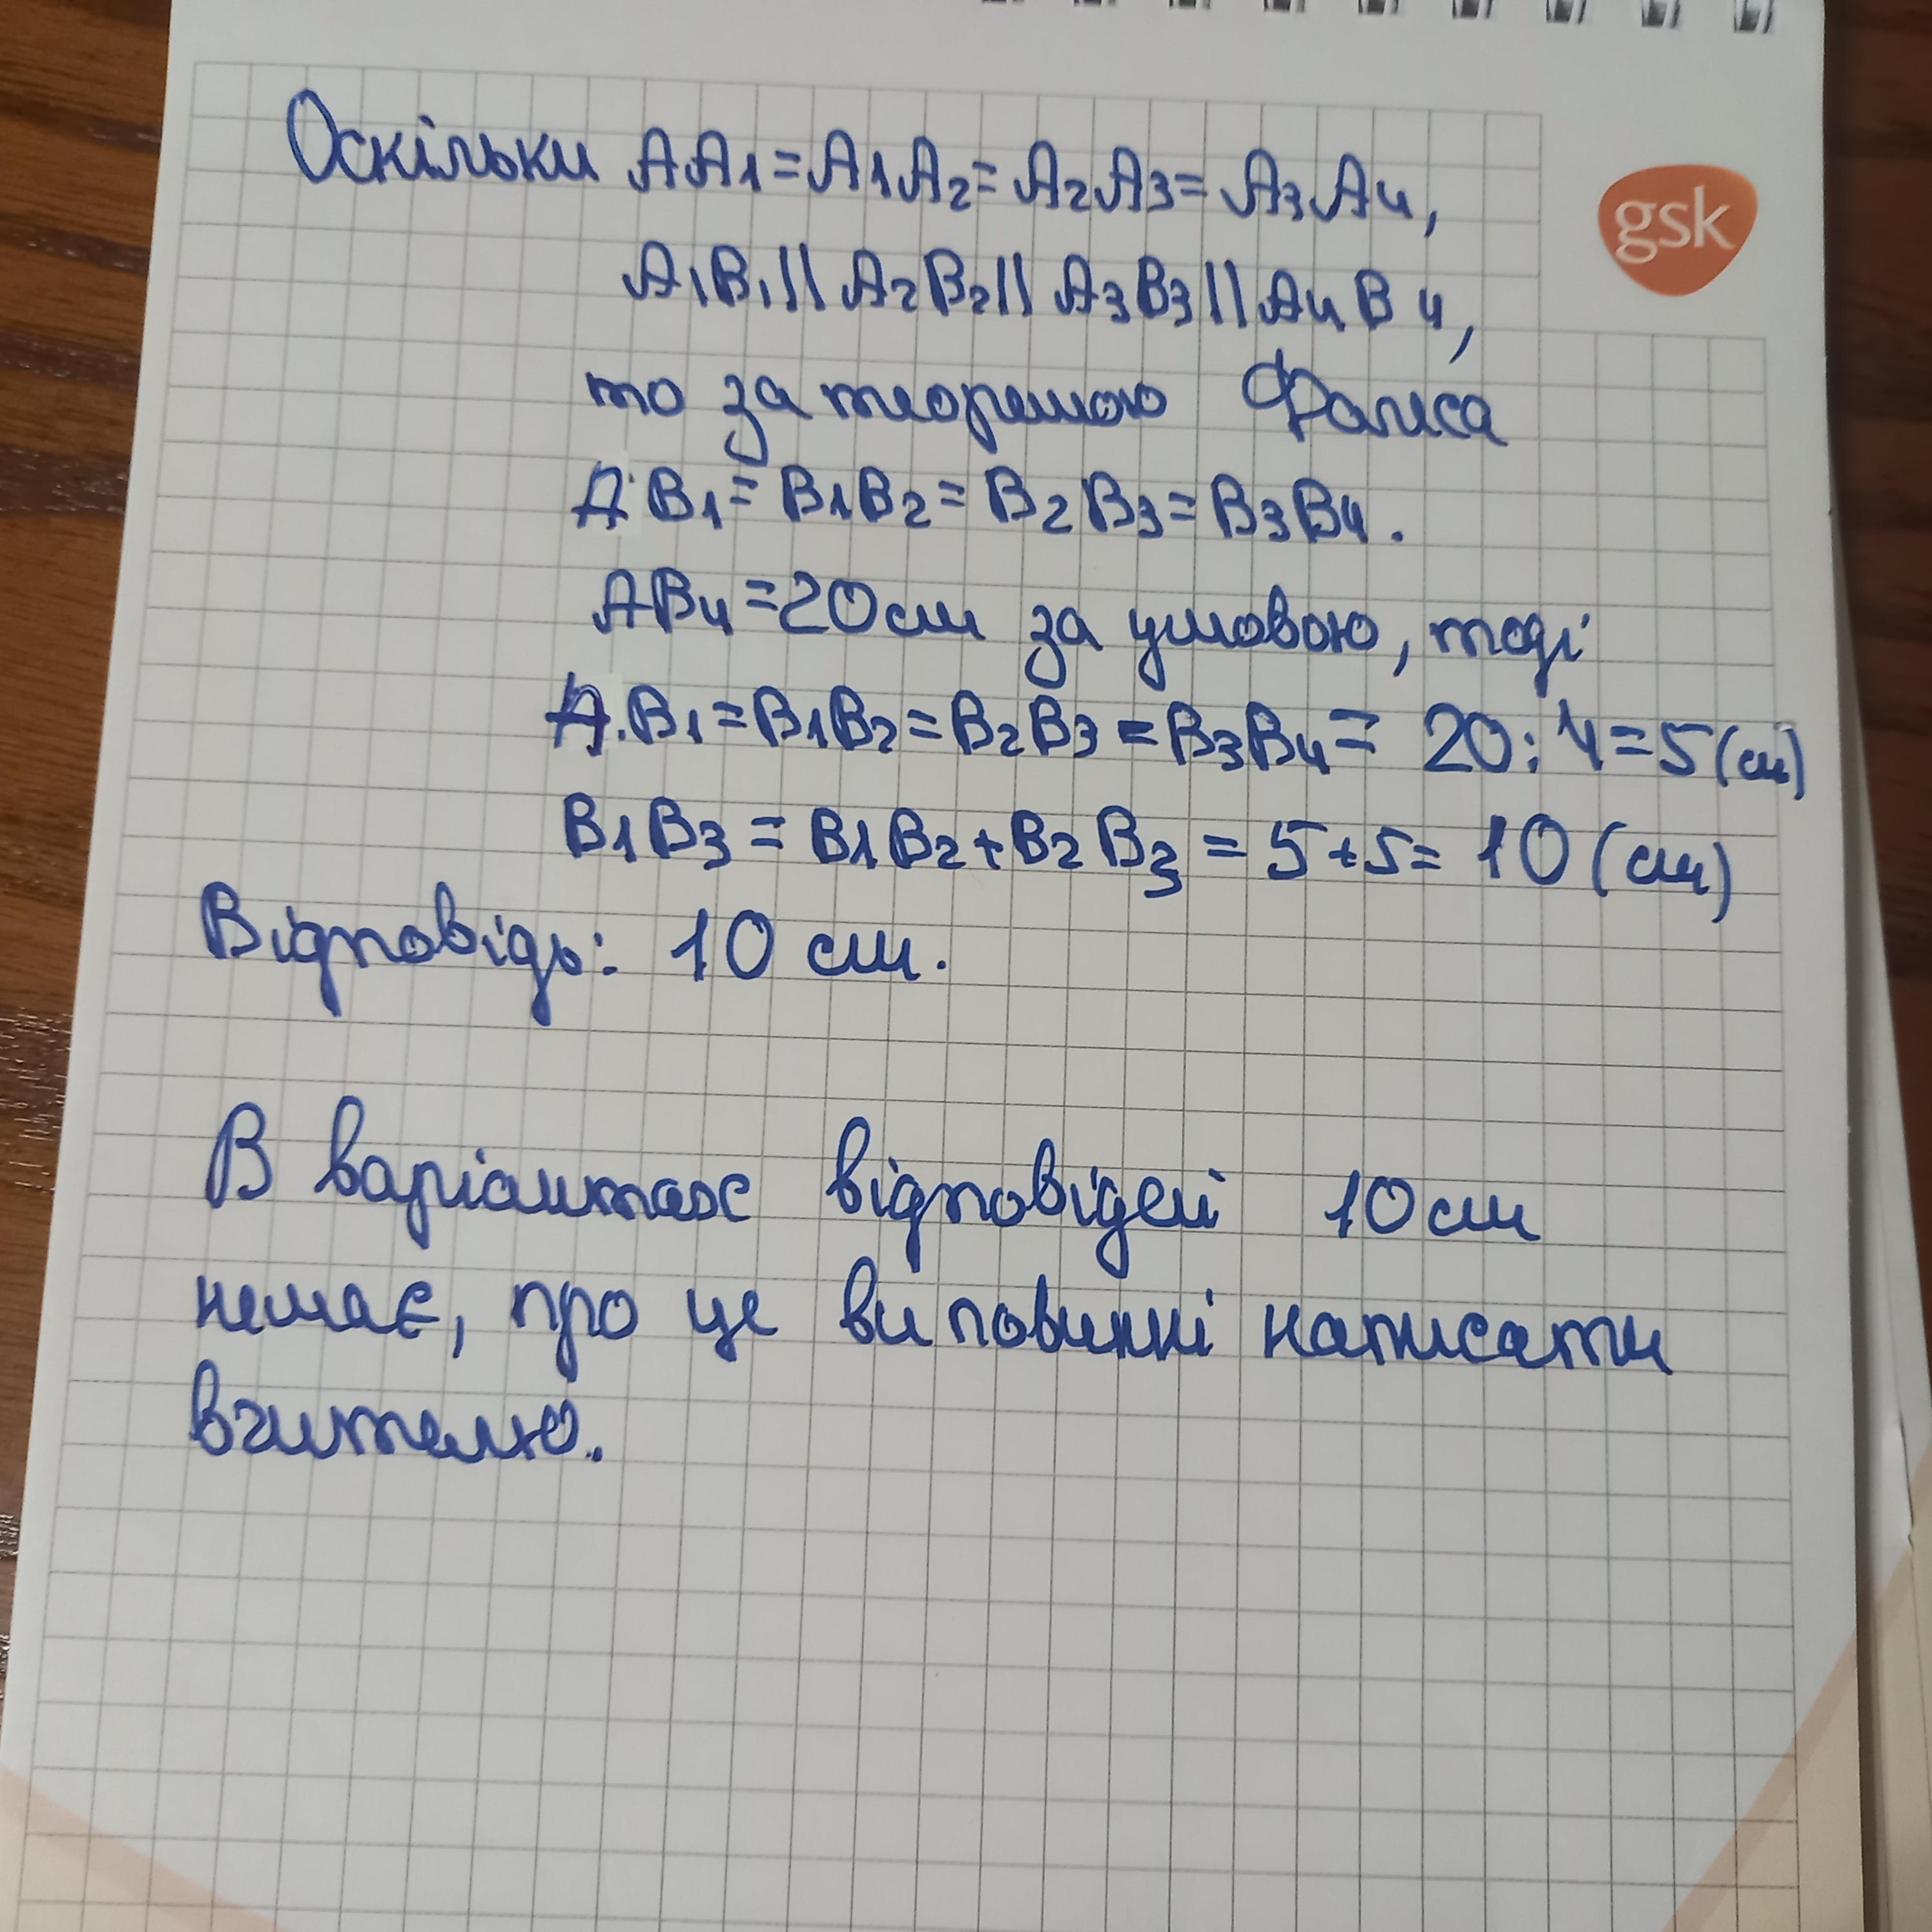 Оскільки AA1=A1A2=A2A3=A3A4,
gsk
A1B1||A2B2||A3B3||A4B4,
то за теоремою Фалеса
AB1=B1B2=B2B3=B3B4.
AB4=20см за умовою, тоді
A.B1=B1B2=B2B3=B3B4=20:4=5(см)
B1B3=B1B2+B2B3=5+5=10(см)
Відповідь: 10 см.
В варіантах відповідей 10см
немає, про це ви повинні написати
вчителю.